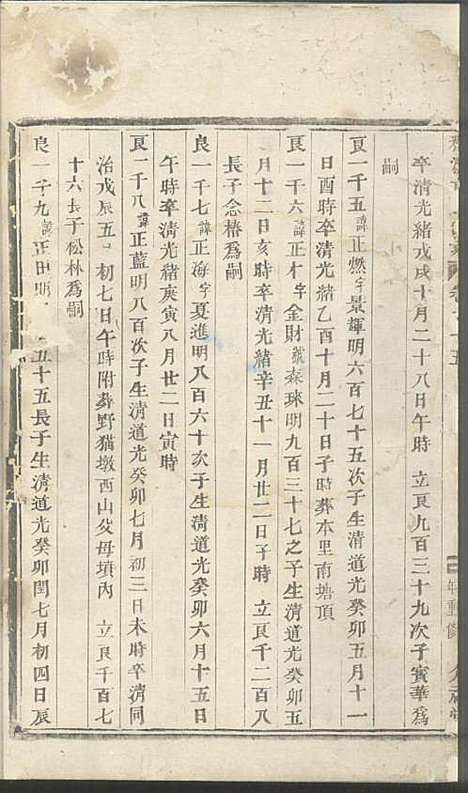 卒清光緒戊戌十月二十八日午時 立良九百三十九次子賓華為
嗣
良一千五諱正燃字景輝明六百七十五次子生清道光癸卯五月十一
日酉時卒清光緒乙酉十月二十日子時葬本里南塘頂
良一千六諱正木字金財號森琜明九百三十七之子生清道光癸卯五
月十二日亥時卒清光緒辛丑十一月廿二日子時 立良千二百八
長子念椿為嗣
良一千七諱正海字夏進明八百六十次子生清道光癸卯六月十五日
午時卒清光緒庚寅八月廿二日寅時
良一千八諱正藍明八百次子生清道光癸卯七月初三日未時卒清同
治戊辰五 初七日午時附葬野猫墩西山父母墳內 立良千百七
十六長子松林為嗣
良一千九諱正田明 五十五長子生清道光癸卯閏七月初四日辰